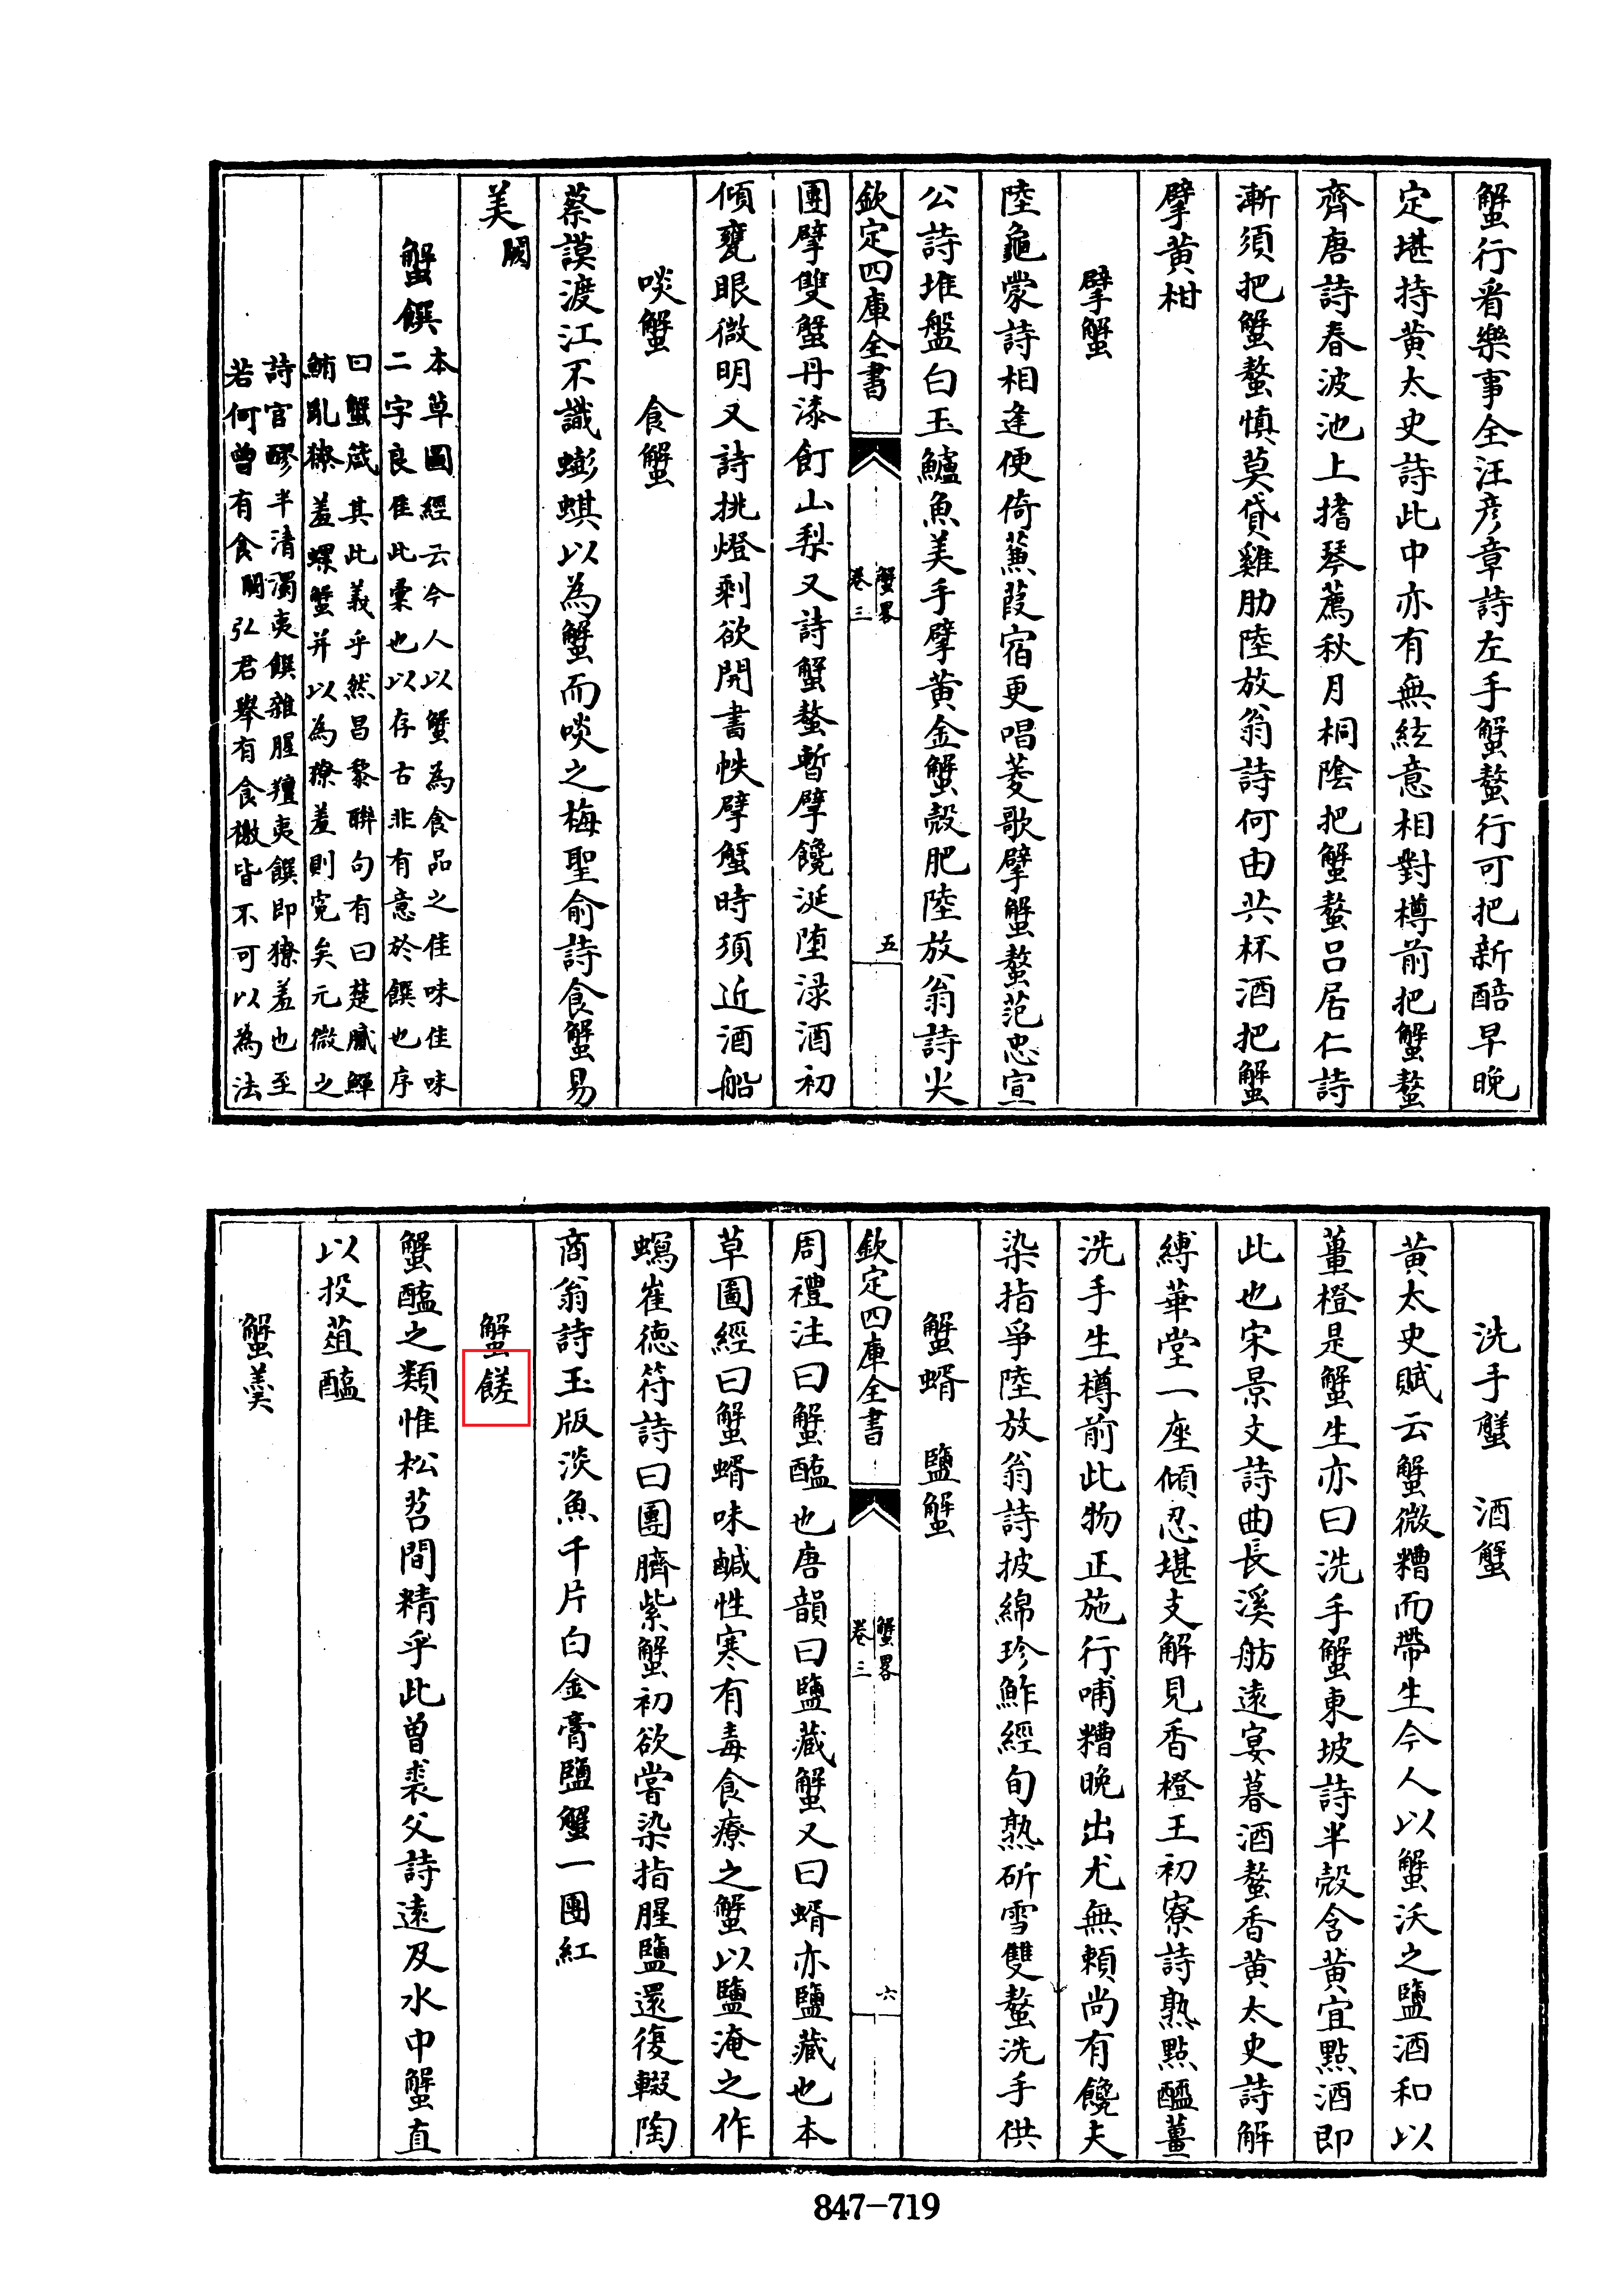 蟹行看樂事全汪彦章詩左手蟹螯行可把新醅早晚
定堪持黄太史詩此中亦有無絃意相對樽前把蟹螯
齊唐詩春波池上搘琴薦秋月桐陰把蟹螯吕居仁詩
漸須把蟹螯慎莫貸雞肋陸放翁詩何由共杯酒把蟹
擘黄柑
擘蟹
陸龜蒙詩相逢便倚蒹葭宿更唱菱歌擘蟹螯范忠宣
公詩堆盤白玉鱸魚美手擘黄金蟹殻肥陸放翁詩尖
欽定四庫全書
蟹畧
卷三
五
團擘雙蟹丹漆飣山梨又詩蟹螯暫擘饞涎堕渌酒初
傾甕眼微明又詩挑燈剩欲開書帙擘蟹時須近酒船
啖蟹　食蟹
蔡謨渡江不識蟛蜞以為蟹而啖之梅聖俞詩食蟹易
美闕
蟹饌
本草圖經云今人以蟹為食品之佳味佳味
二字良佳此彙也以存古非有意於饌也序
曰蟹箴其此義乎然昌黎聨句有曰楚膩鱓
鮪亂獠羞螺蟹并以為獠羞則寃矣元微之
詩官醪半清濁夷饌雜腥羶夷饌即獠羞也至
若何曾有食闕弘君舉有食檄皆不可以為法
洗手蟹　酒蟹
黄太史賦云蟹微糟而帶生今人以蟹沃之鹽酒和以
薑橙是蟹生亦曰洗手蟹東坡詩半殻含黄宜點酒即
此也宋景文詩曲長溪舫遠宴暮酒螯香黄太史詩解
縛華堂一座傾忍堪支解見香橙王初寮詩熟點醯薑
洗手生樽前此物正施行哺糟晚出尤無賴尚有饞夫
染指爭陸放翁詩披綿珍鮓經旬熟斫雪雙螯洗手供
蟹蝑　鹽蟹
欽定四庫全書
蟹畧
卷三
六
周禮注曰蟹醢也唐韻曰鹽藏蟹又曰蝑亦鹽藏也本
草圖經曰蟹蝑味鹹性寒有毒食療之蟹以鹽淹之作
蝑崔德符詩曰團臍紫蟹初欲嘗染指腥鹽還復輟陶
商翁詩玉版淡魚千片白金膏鹽蟹一團紅
蟹䭉
蟹醢之類惟松苕間精乎此曾裘父詩遠及水中蟹直
以投葅醢
蟹羹
847-719